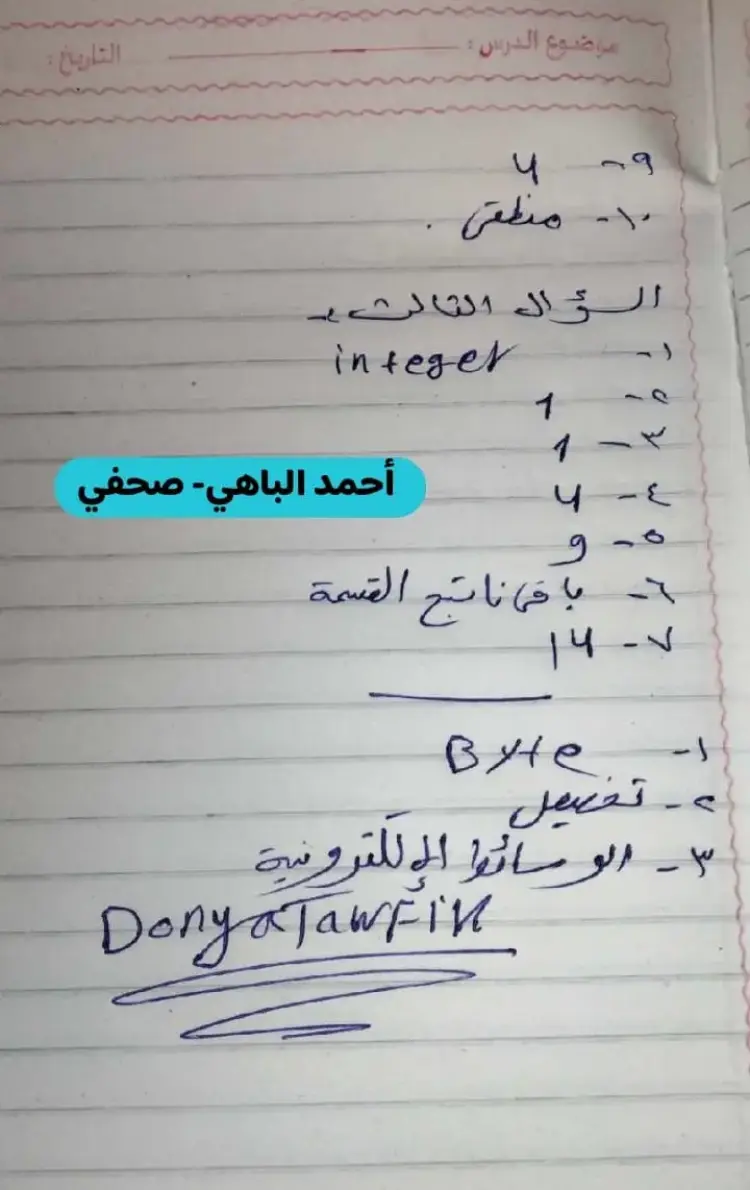 موضوع الدرس : التاريخ :
٩- 4
١٠- منطقى .
السؤال الثالث :-
١- integer
٢- 1
٣- 1
٤- 4
٥- 9
٦- باقى ناتج القسمة
٧- 14
أحمد الباهي- صحفي
١- Byte
٢- تفعيل
٣- الوسائط الإلكترونية
Donya Tawfik